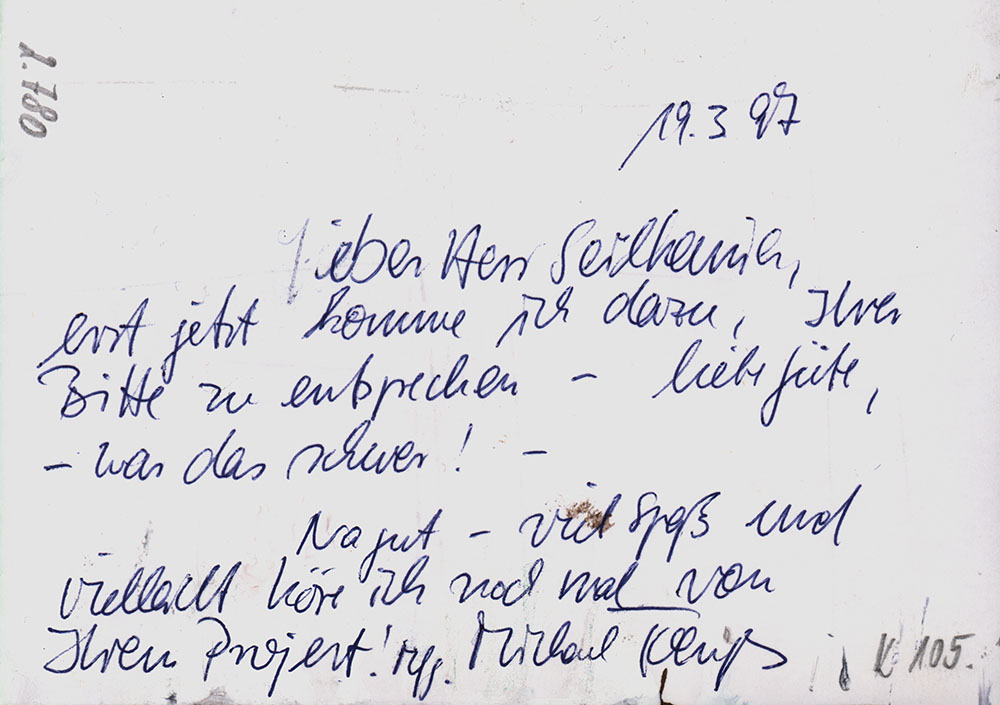 1.780
19.3 97
lieber Herr
erst jetzt komme ich dazu, Ihrer
Bitte zu entsprechen – liebe Güte,
– war das schwer! –
Na gut – viel Spaß und
vielleicht höre ich noch mal von
Ihrem Projekt! Michael
K 105.